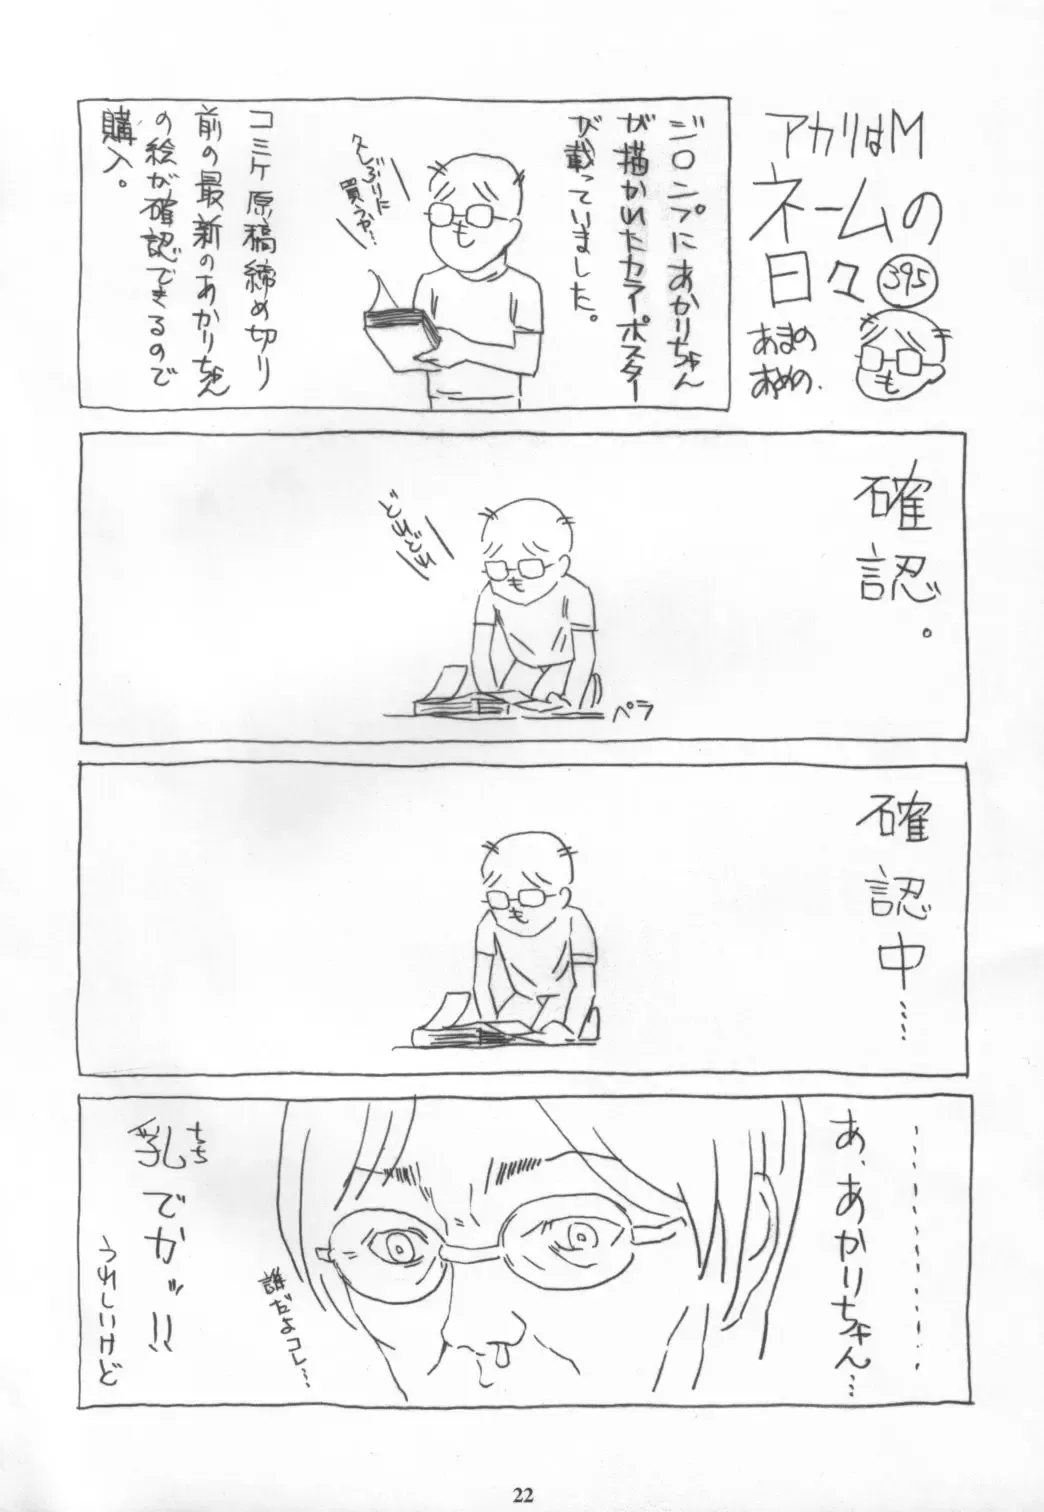 アカリはM
ネームの
日々
395
あまの
あめの.
ジャンプにあかりちゃん
が描かれたカラーポスター
が載っていました。
久しぶりに
買うか…
コミケ原稿締め切り
前の最新のあかりちゃん
の絵が確認できるので
購入。
確認。
どれどれ
ペラ
確認中……
………………
あ、あかりちゃん…
誰だよコレ…
乳でかッ!!
ちち
うれしいけど
22